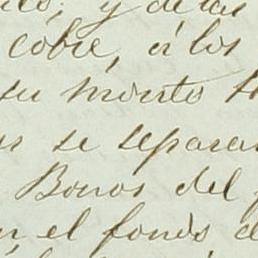 y de las
cobre, á los
su monto
se separa
Bonos del
el fondo d